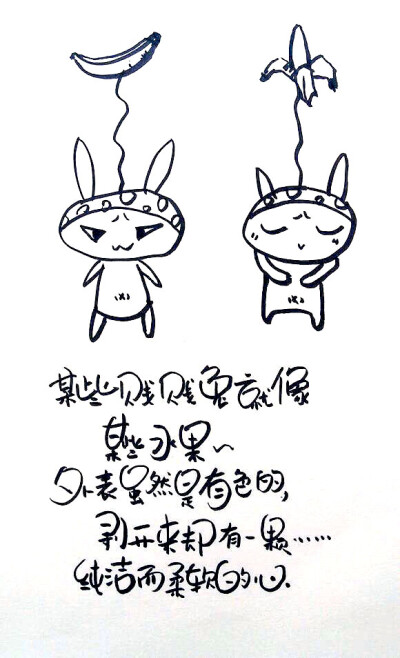 某些贱贱兔就像
某些水果~
外表虽然是有色的,
剥开来却有一颗……
纯洁而柔软的心.